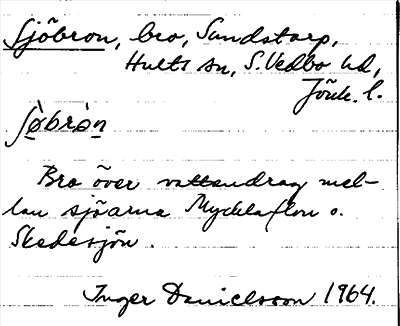 Sjöbron, bro, Sundstorp,
Hults sn, S. Vedbo hd,
Jönk. l.
ʃø̀bròn
Bro över vattendrag mel-
lan sjöarna Mycklaflon o.
Skedesjön.
Inger Danielsson 1964.